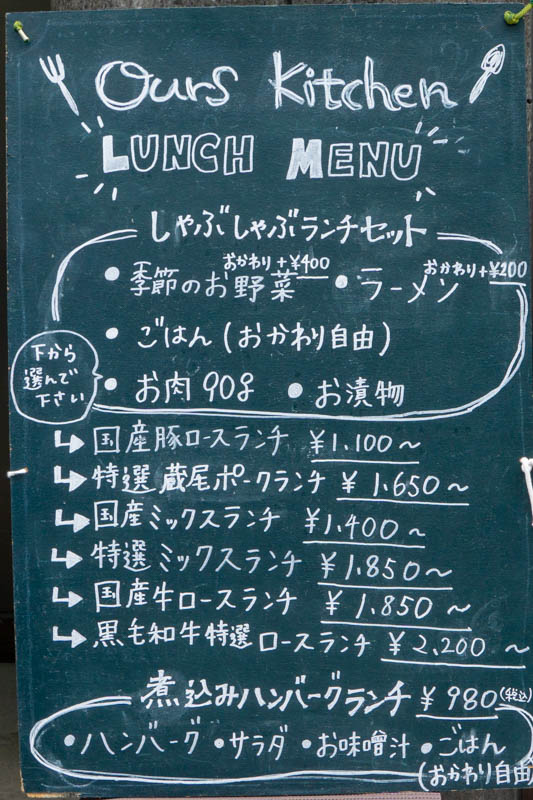 Ours Kitchen
LUNCH MENU
しゃぶしゃぶランチセット
おかわり+¥400
おかわり+¥200
• 季節のお野菜 • ラーメン
• ごはん (おかわり自由)
• お肉 90g • お漬物
下から
選んで
下さい
↳ 国産豚ロースランチ ¥1.100~
↳ 特選 蔵尾ポークランチ ¥1.650~
↳ 国産ミックスランチ ¥1.400~
↳ 特選 ミックスランチ ¥1.850~
↳ 国産牛ロースランチ ¥1.850~
↳ 黒毛和牛特選ロースランチ ¥2.200~
煮込みハンバーグランチ ¥980(税込)
•ハンバーグ •サラダ •お味噌汁 •ごはん
(おかわり自由)